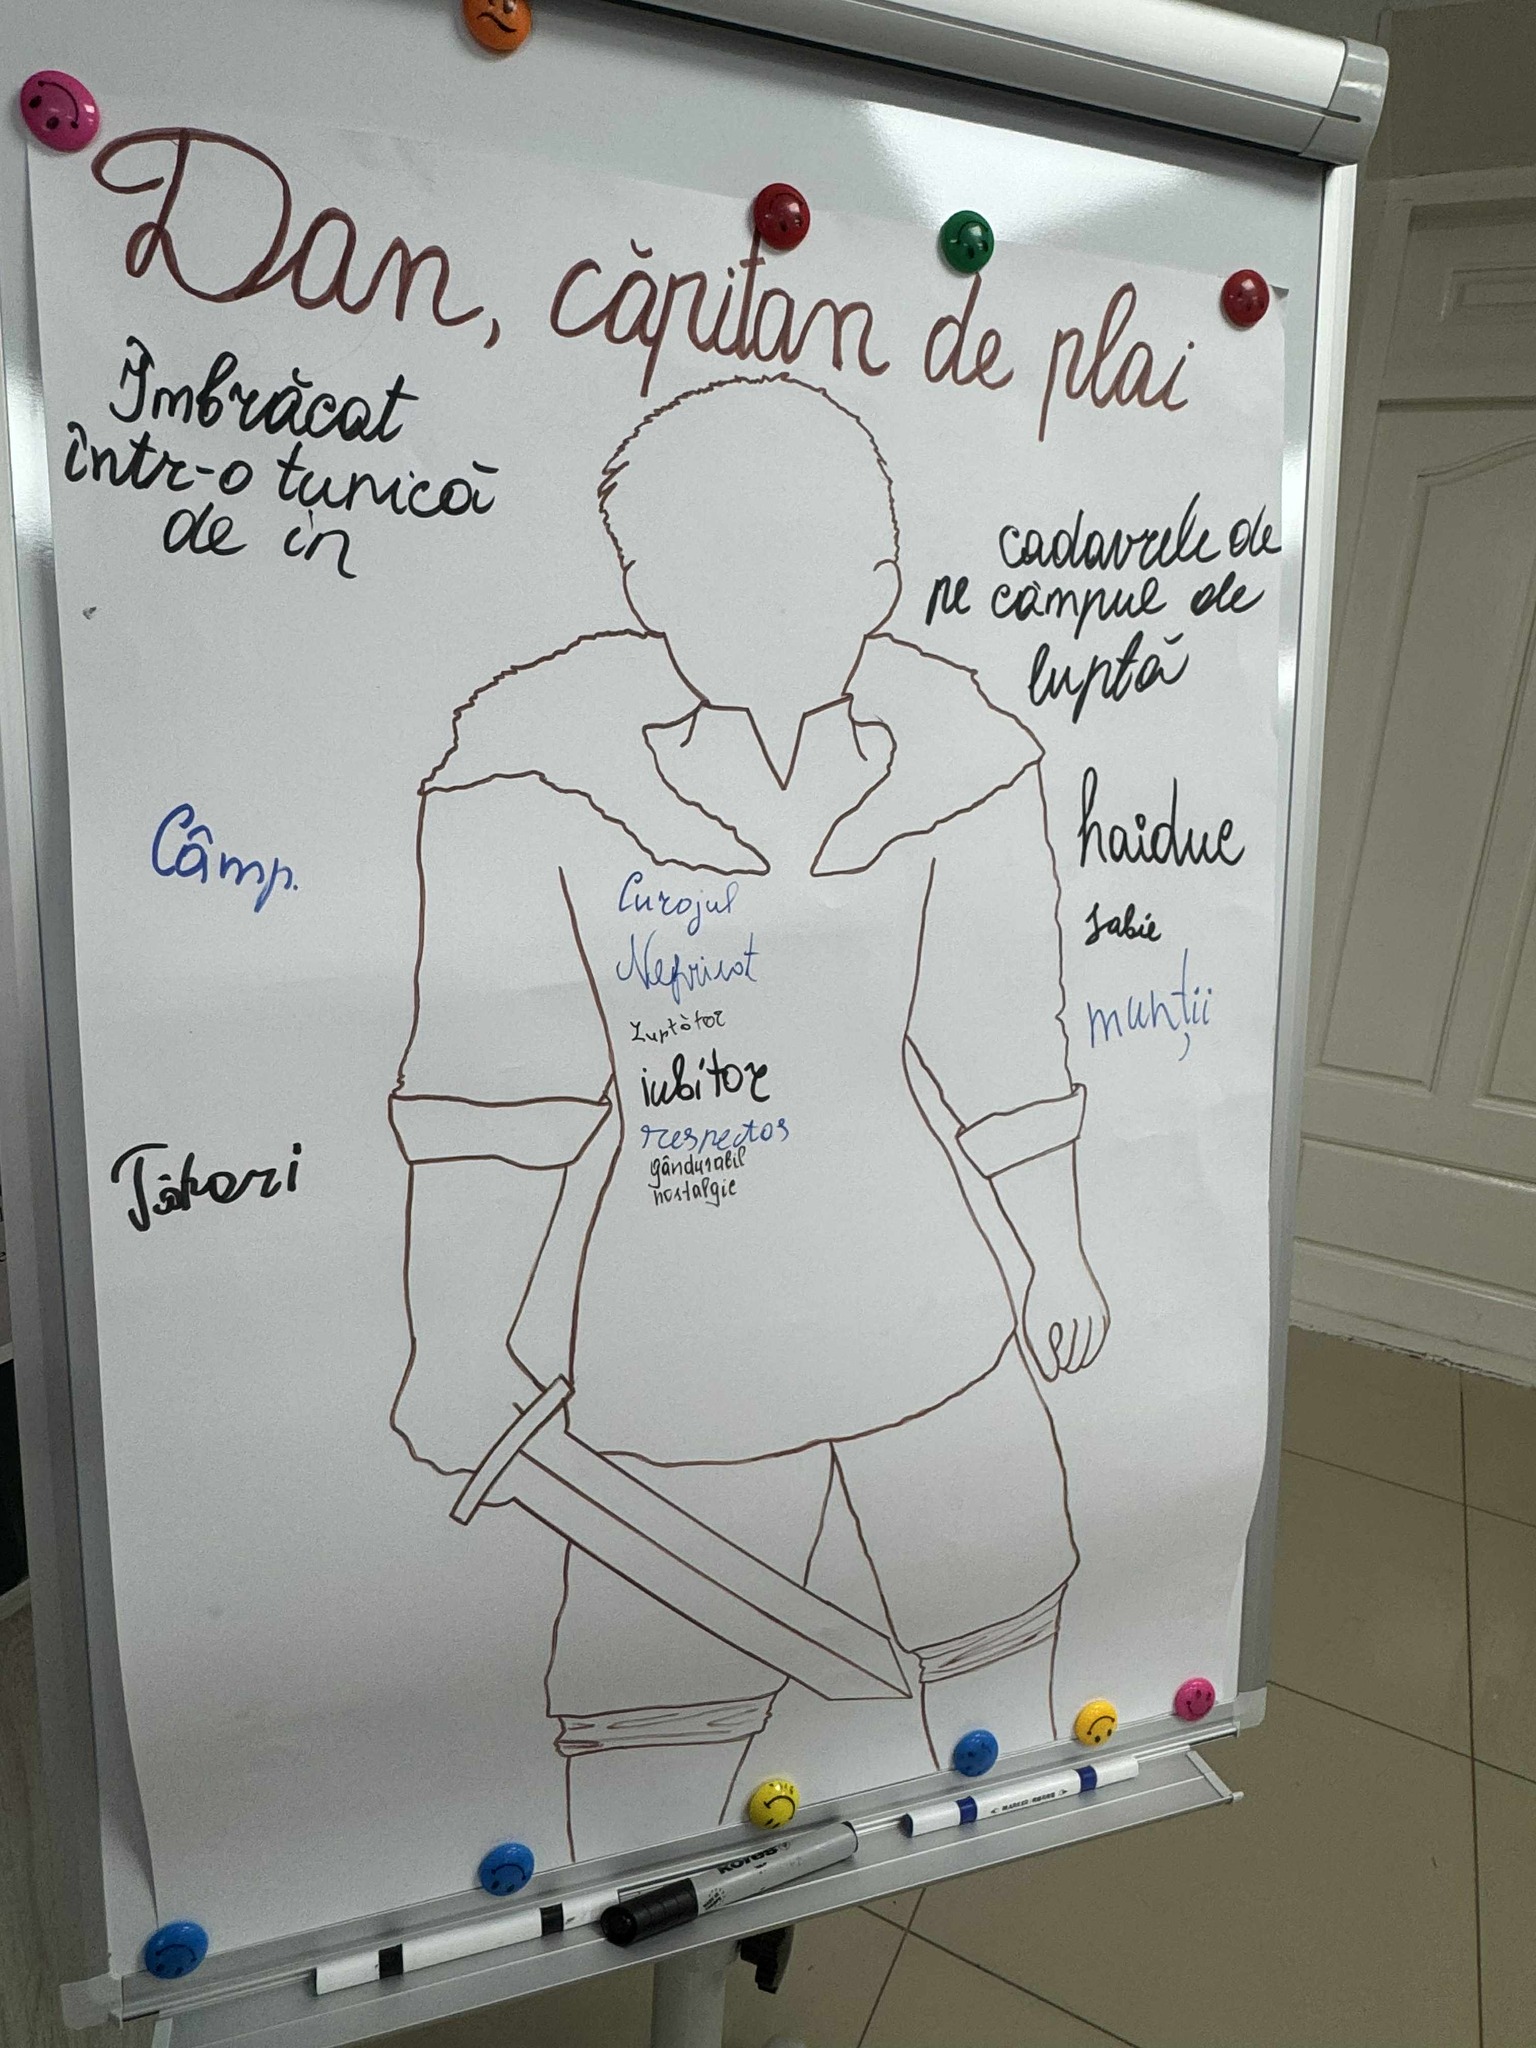 Dan, căpitan de plai
Îmbrăcat
într-o tunică
de in
cadavrele de
pe câmpul de
luptă
haiduc
sabie
munții
Câmp.
Tătari
Curajul
Nefricat
Luptător
iubitor
respectos
gândurabil
nostalgie
Kores